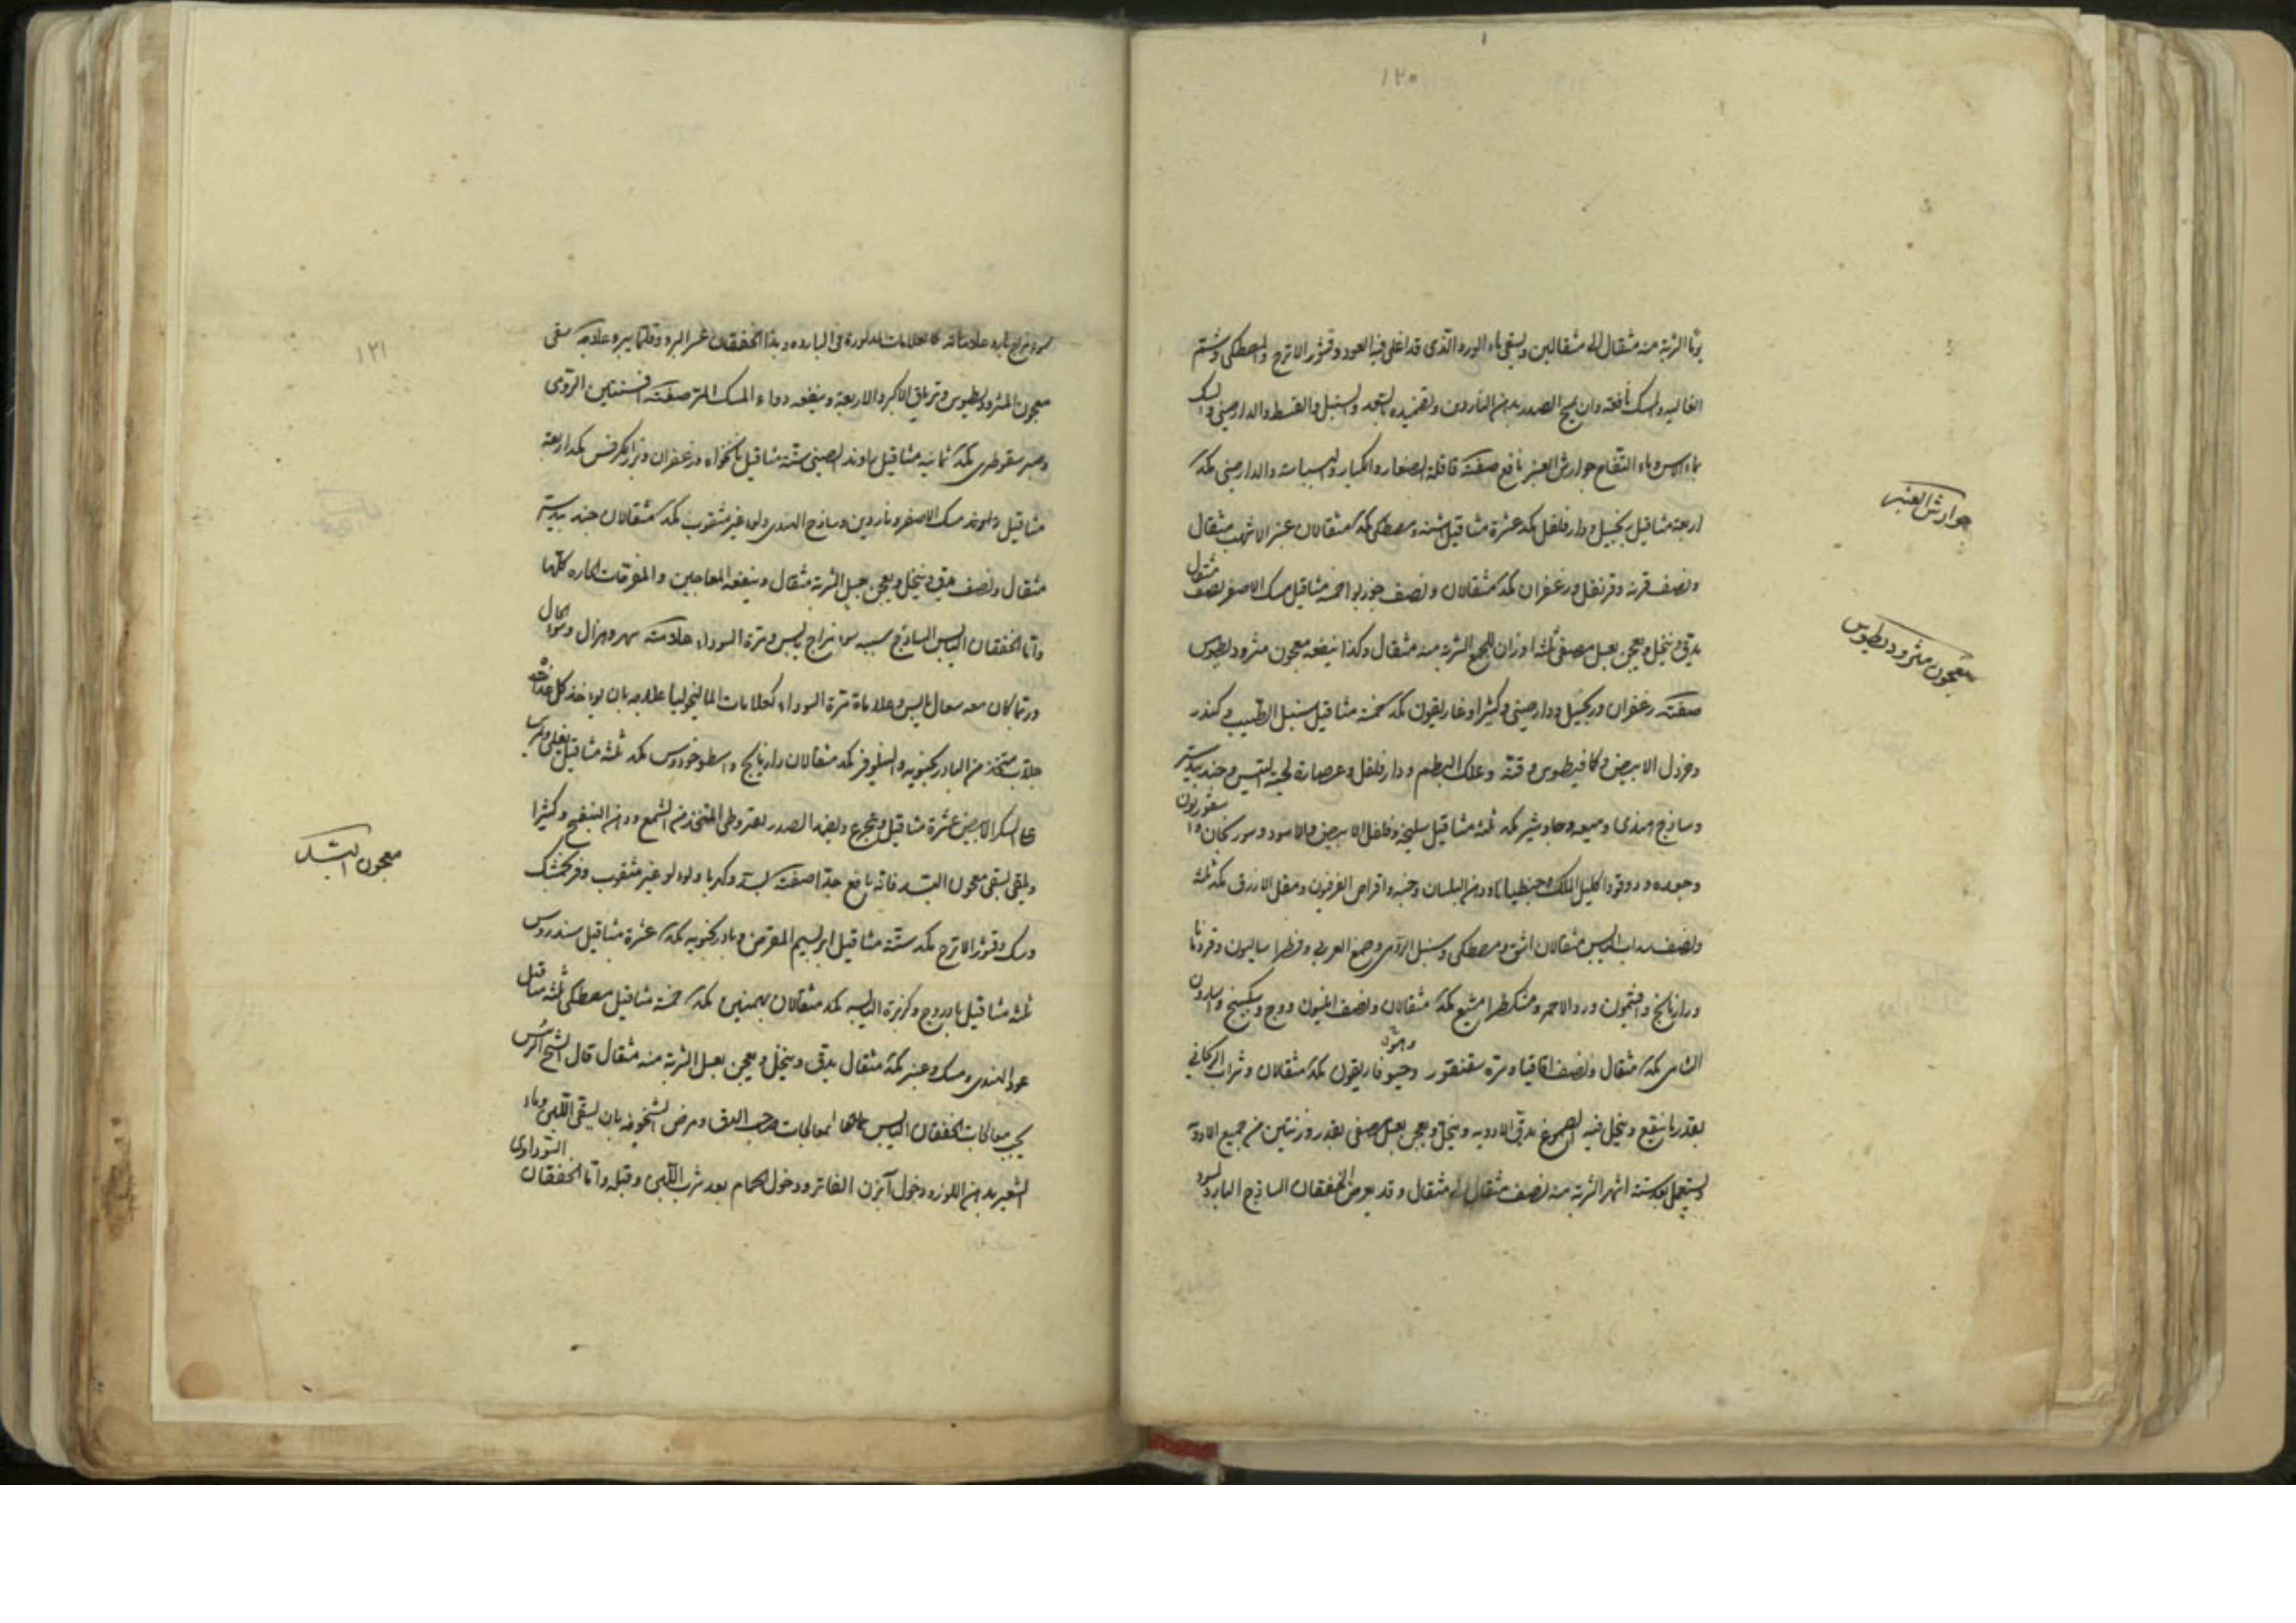 ١٢٠
الشربة منه مثقال الى مثقالين ويسقى بماء الورد الذى قد اغلى فيه العود وقشور الاترج والمصطكى وشم
الغاليه والمسك نافعة وان يمسح الصدر بدهن الناردين وتضميده بالسعد والسنبل والقسط والدارصينى والسك
بماء الاس وماء التفاح جوارش العنبر نافع صفته قاقلة الصغار والكبار والبسباسة والدارصينى مكد
اربعة مثاقيل زنجبيل ودارفلفل مكد عشرة مثاقيل اشنه ومصطكى مكد مثقالان عنبر الاشهب مثقال
ونصف قرفه وقرنفل وزعفران مكد مثقالان ونصف جوزبوا خمسة مثاقيل مسك الاصفر نصف مثقال
يدق وينخل ويعجن بعسل مصفى ثلثة اوزان الجميع الشربة منه مثقال وكذا ينفعه معجون مثروديطوس
صفته زعفران وزنجبيل ودارصينى وكثيرا وغاريقون مكد خمسة مثاقيل سنبل الطيب وكندر
وخردل الابيض وكمافيطوس وقنه وعلك البطم ودارفلفل وعصارة لحية التيس وجندبيدستر
وساذج هندى وميعه وجاوشير مكد ثلثة مثاقيل سليخة وفلفل الابيض والاسود وسورنجان واسقوريون
وجعده ودوقو واكليل الملك وجنطيانا ودهن البلسان وحبه واقراص القرفيون ومقل الازرق مكد ثلثة
ونصف سداب اليابس مثقالان اشق ومصطكى وسنبل الرومى وصمغ العربى وفطراساليون وقردمانا
ورازيانج وافتيمون وورد الاحمر ومشكطرامشيع مكد مثقالان ونصف انيسون ووج وسكبينج واسارون
الشامى مكد مثقال ونصف اقاقيا وسرة سقنقور وهيوفاريقون مكد مثقالان وشراب الريحانى
بقدر ما ينقع وينحل فيه الصموغ يدق الادويه وينخل ويعجن بعسل مصفى بقدر وزنتين من جميع الادوية
ويستعمل بعد ستة اشهر الشربة منه نصف مثقال الى مثقال وقد يعرض الخفقان الساذج البارد لسوء
جوارش العنبر
معجون مثروديطوس
١٢١
مزاج بارد علاماته كالعلامات المذكورة فى البارده وهذا الخفقان عسر البرء وقلما يبرء علاجه سقى
معجون المثروديطوس وترياق الاكبر والاربعة وينفعه دواء المسك المر صفته افسنتين الرومى
وصبر سقوطرى مكد ثمانيه مثاقيل راوند الصينى ستة مثاقيل نانخواه وزعفران وبزر الكرفس مكد اربعة
مثاقيل مسك الاصفر وناردين وساذج الهندى ولؤلؤ غير مثقوب مكد مثقالان جندبيدستر
مثقال ونصف يدق وينخل ويعجن بعسل الشربة مثقال وينفعه المعاجين والمفرحات الحاره كلها
واما الخفقان اليابس الساذج سببه سوء مزاج يابس ومرة السوداء علامته سهر وهزال وسعال
وربما كان معه سعال يابس وعلامات مرة السوداء كعلامات الماليخوليا علاجه بان يؤخذ كل غداة
جلاب متخذ من البادرنجبويه والنيلوفر مكد مثقالان رازيانج واسطوخودوس مكد ثلثة مثاقيل يغلى
على السكر الابيض عشرة مثاقيل ويتجرع ويضمد الصدر بقيروطى المتخذ من الشمع ودهن البنفسج وكثيرا
ويسقى معجون البسد فانه نافع جدا صفته بسد وكهربا ولؤلؤ غير مثقوب وفرنجمشك
وسك وقشور الاترج مكد ستة مثاقيل ابريسم المقرض وبادرنجبويه مكد عشرة مثاقيل سندروس
ثلثة مثاقيل بادروج وكزبرة اليابسه مكد مثقالان بهمنين مكد خمسة مثاقيل مصطكى ثلثة مثاقيل
عود الهندى ومسك وعنبر مكد مثقال يدق وينخل ويعجن بعسل الشربة منه مثقال قال الشيخ الرئيس
يجب معالجات الخفقان اليابس بمعالجات صاحب الدق ومرض الشيخوخه بان يسقى اللبن وماء
الشعير بدهن اللوز ودخول آبزن الفاتر ودخول الحمام بعد شرب اللبن وقبله واما الخفقان السوداوى
معجون البسد